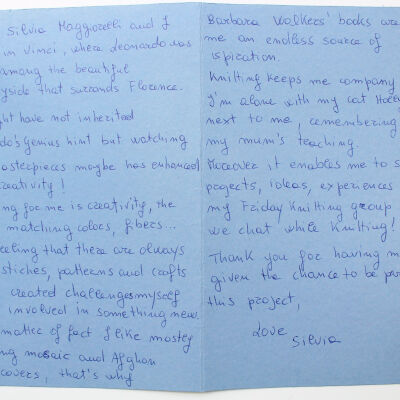 Silvia Maggiorelli and I
in Vinci, where Leonardo was
among the beautiful
yside that surronds Florence.
ght have not inherited
do's genius hint but watching
asterpieces maybe has enhanced
reativity!
ng for me is creativity, the
matching colors, fibers...
eeling that there are always
stiches, patterns and crafts
created challenges myself
involved in something new.
matter of fact I like mostly
ng mosaic and Afghan
covers, that's why
Barbara Walkers' books are
me an endless source of
ispiration.
Knitting keeps me company
I'm alone with my cat
next to me, remembering
my mum's teaching.
Moreover it enables me to s
projects, ideas, experiences
my Friday Knitting group
we chat while Knitting!
Thank you for having m
given the chance to be par
this project,
Love
Silvia